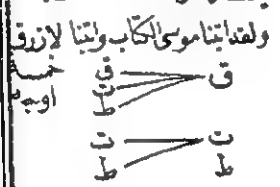 ولقد اتينا موسى الكتاب واتينا لازرق
ق ق خمسة
ت اوجه
ط
ت ت
ط ط